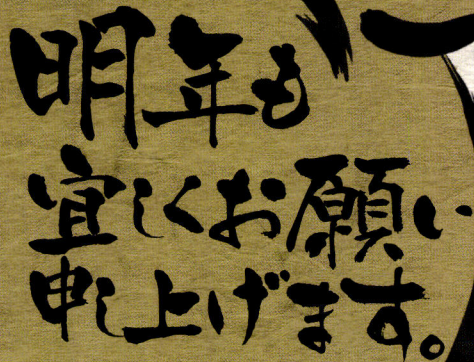 明年も
宜しくお願い
申し上げます。